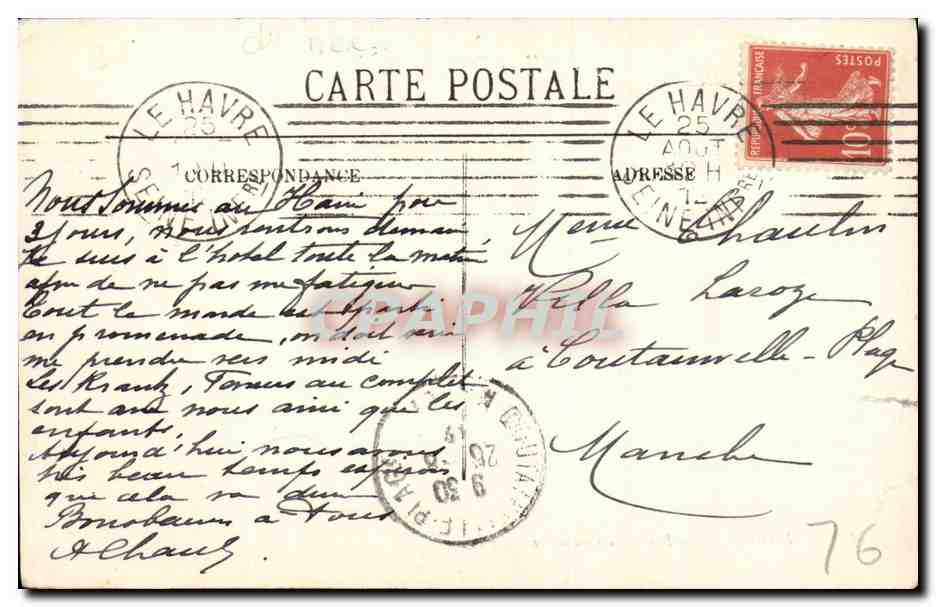 CARTE POSTALE
CORRESPONDANCE
ADRESSE
LE HAVRE
25
SEINE INFRE
LE HAVRE
25
AOUT
12
SEINE INFRE
REPUBLIQUE FRANÇAISE
POSTES
10c
Nous sommes au Havre pour
2 jours, nous rentrons demain
Je suis à l'hotel toute la matinée
afin de ne pas me fatiguer
Tout le monde est parti
en promenade, on doit venir
me prendre vers midi
Les Krantz, au complet
sont avec nous ainsi que les
enfants.
Aujourd'hui nous avons
très beau temps espérons
que cela va durer
Bons baisers à tous
Mme Chaulin
Villa Laroze
à Coutainville-Plage
Manche
COUTAINVILLE-PLAGE
9 30
26
CPAPHIL
76